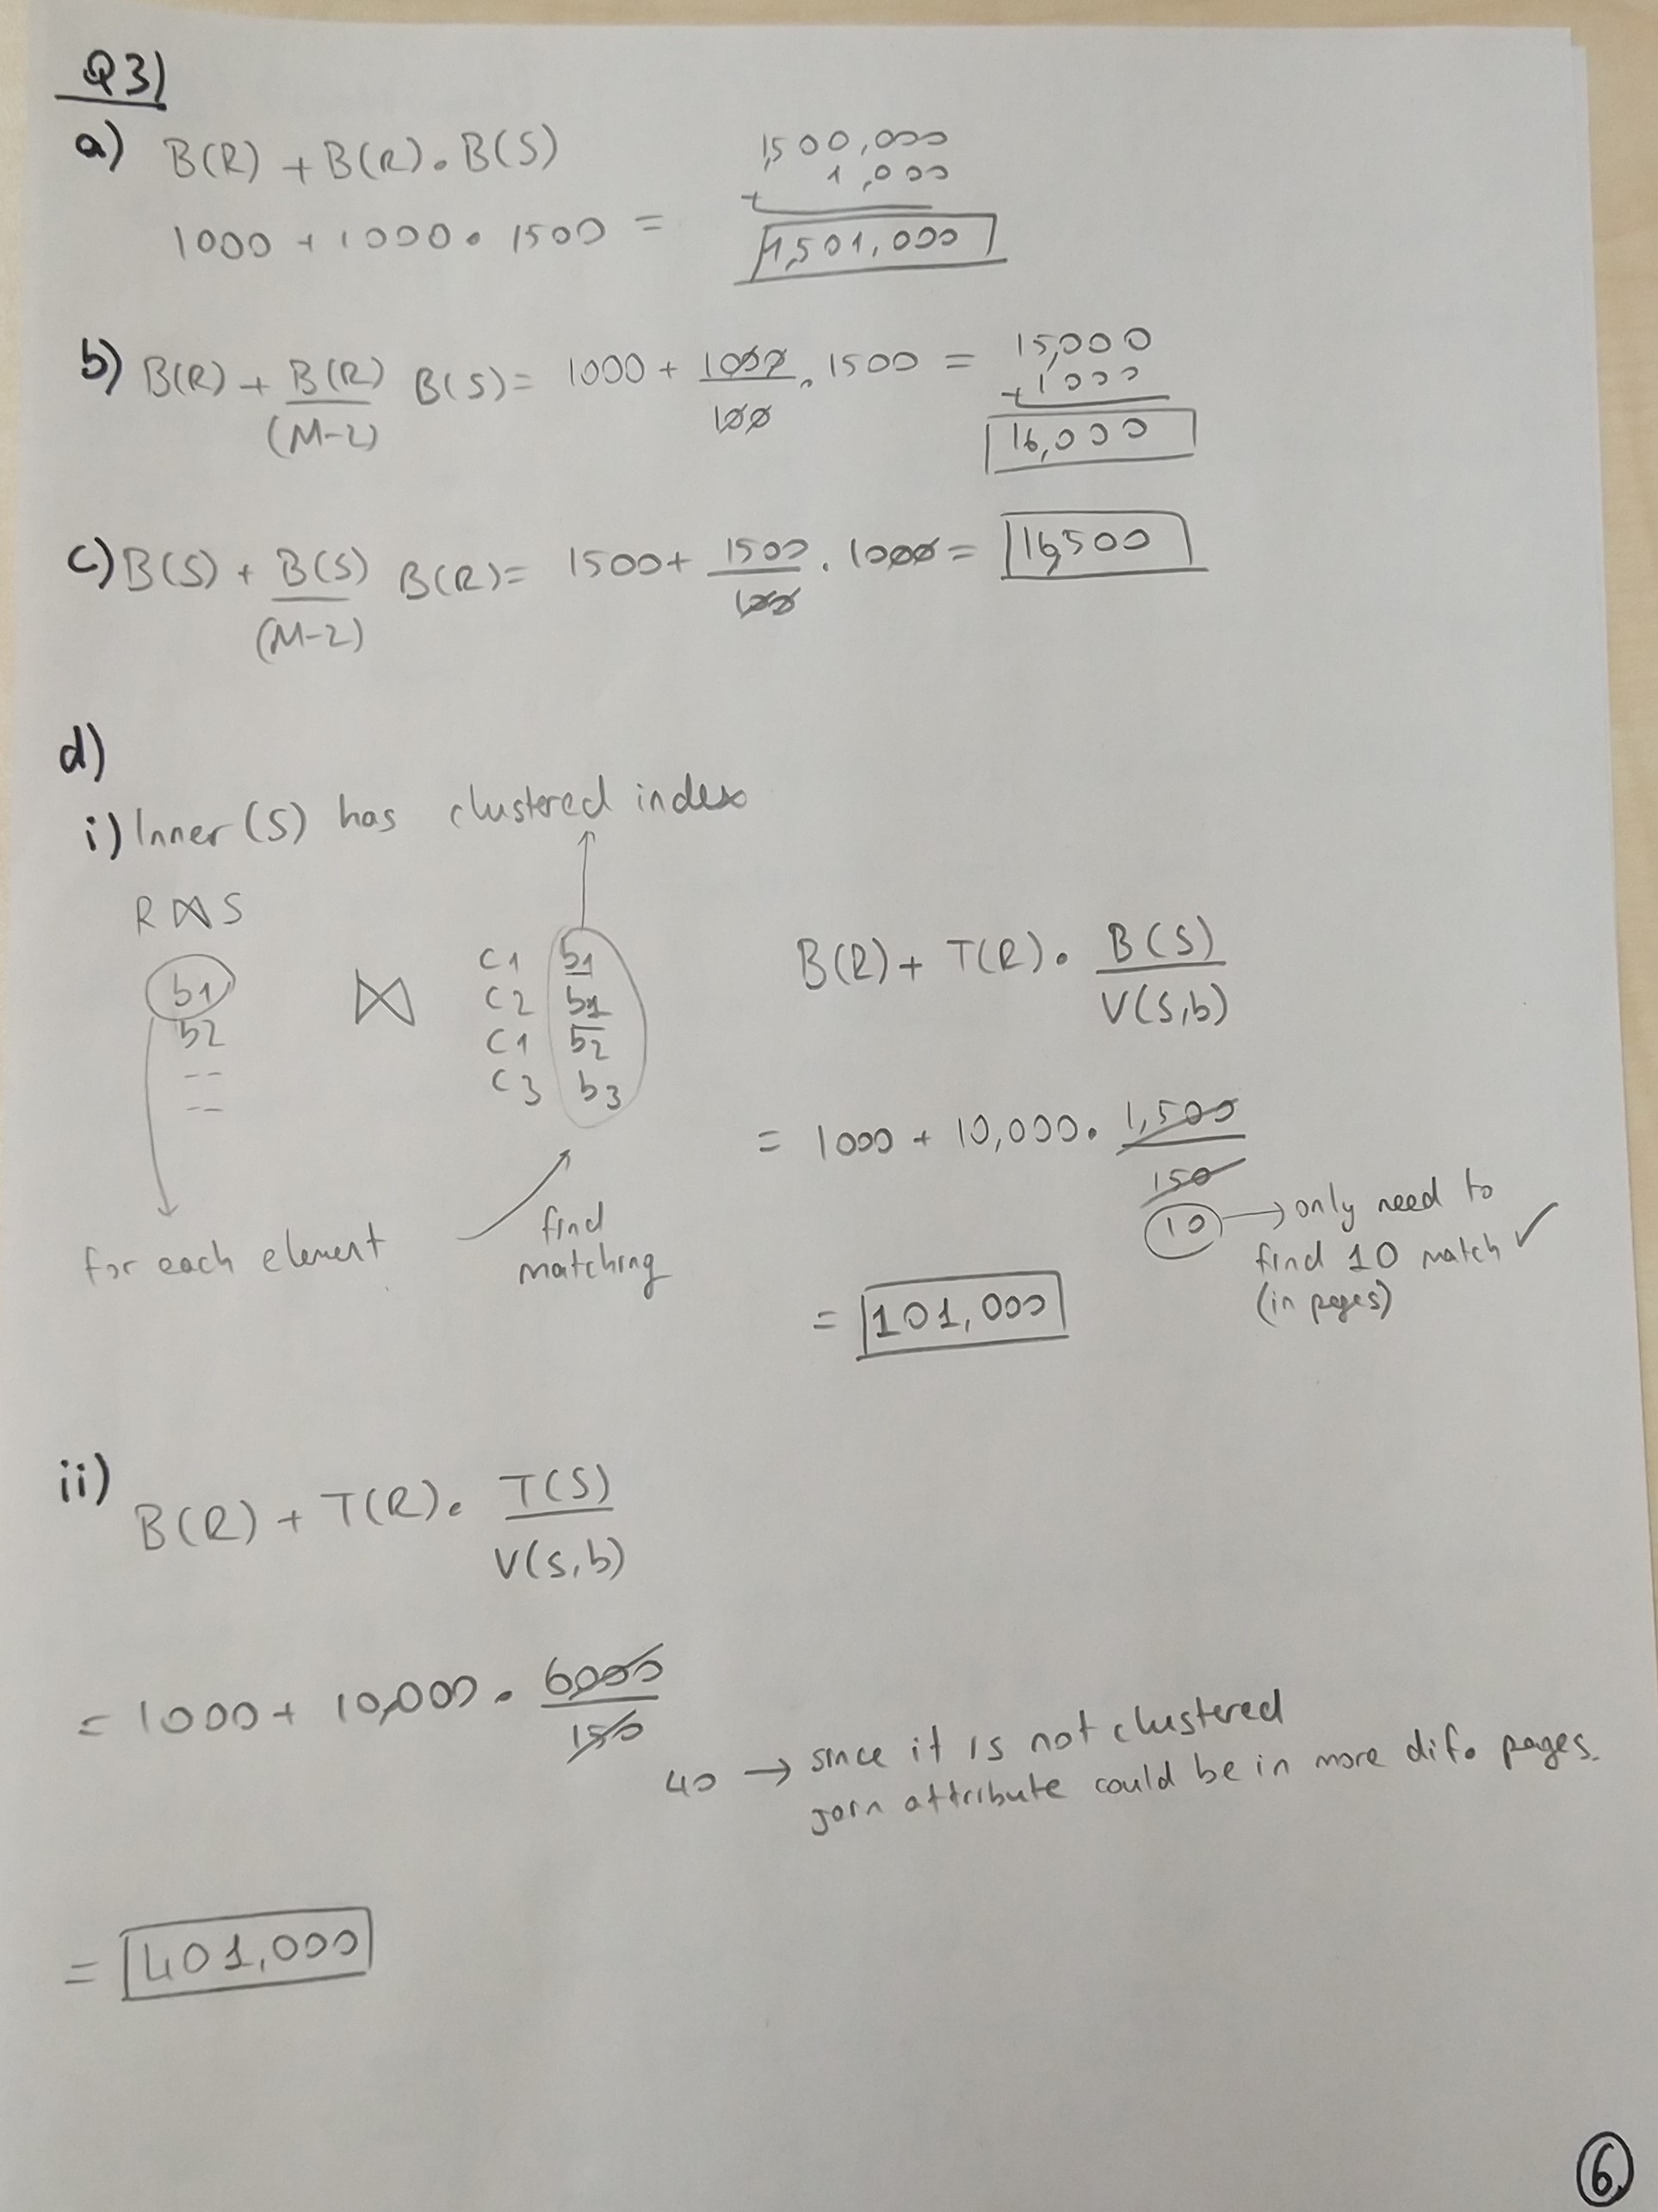 Q3)
a) B(R) + B(R) . B(S)
1000 + 1000 . 1500 =
1,500,000
1,000
+
1,501,000
b) B(R) + B(R)/(M-2) B(S) = 1000 + 1000/100 . 1500 =
15,000
+ 1000
16,000
c) B(S) + B(S)/(M-2) B(R) = 1500 + 1500/100 . 1000 = 16,500
d)
i) Inner (S) has clustered index
R ⋈ S
b1
b2
--
--
⋈
C1 b1
C2 b1
C1 b2
C3 b3
for each element
find
matching
B(R) + T(R) . B(S)/V(S,b)
= 1000 + 10,000 . 1,500/150
10 → only need to
find 10 match ✓
(in pages)
= 101,000
ii) B(R) + T(R) . T(S)/V(S,b)
= 1000 + 10,000 . 6000/150
40 → since it is not clustered
join attribute could be in more dif. pages.
= 401,000
6